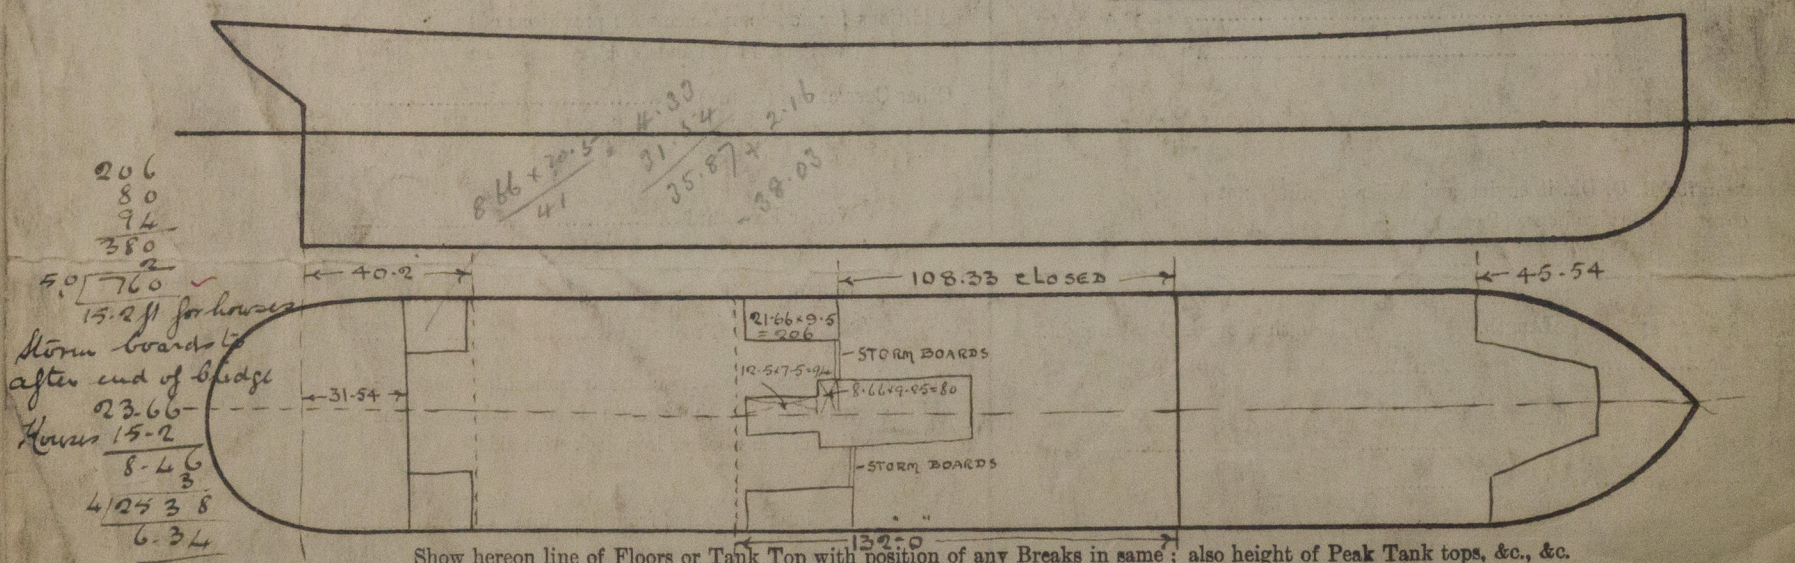 8.66 × 30.5 = 4.33
41
31.54
35.87 + 2.16
- 38.03
206
80
94
380
2
5.0 760
15.2 ft for houses
Storm boards to
after end of bridge
23.66
Houses 15-2
8-46
3
4/25 38
6.34
40.2
108.33 CLOSED
45.54
21.66×9.5
= 206
STORM BOARDS
12.5×7.5=94
8.66×9.25=80
31.54
STORM BOARDS
132-0
Show hereon line of Floors or Tank Top with position of any Breaks in same ; also height of Peak Tank tops, &c., &c.